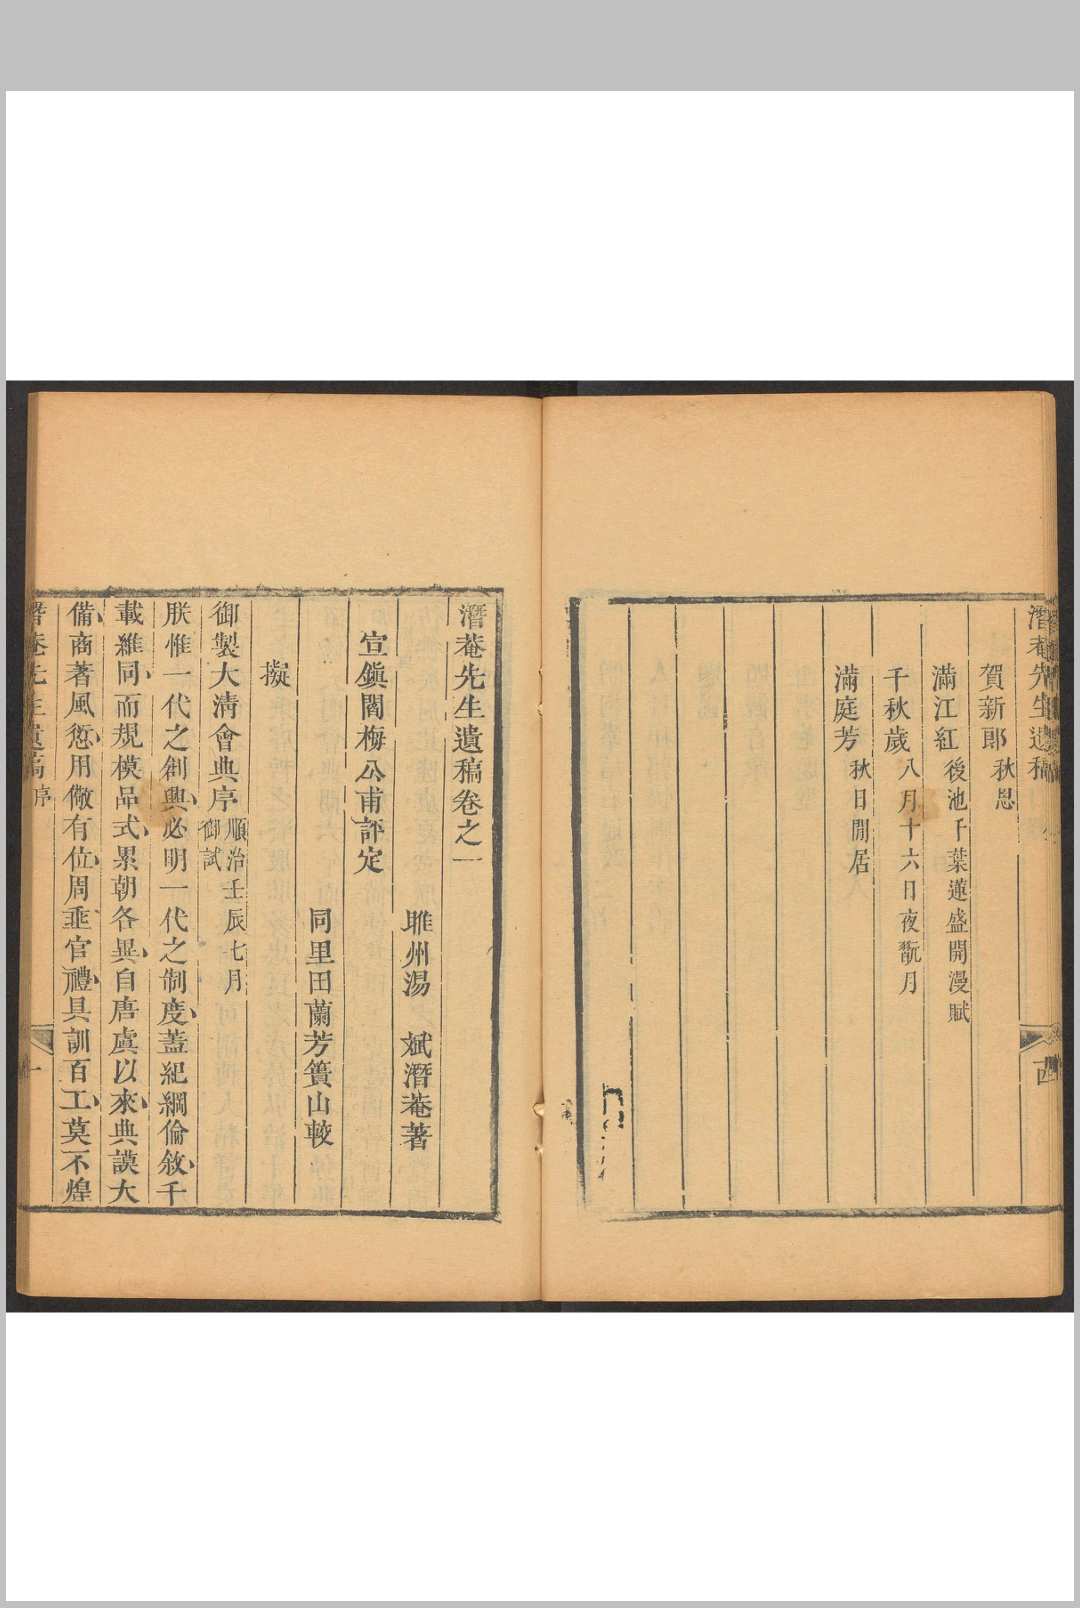 潛菴先生遺稿
賀新郎 秋思
滿江紅 後池千葉蓮盛開漫賦
千秋歲 八月十六日夜翫月
滿庭芳 秋日閒居
潛菴先生遺稿卷之一
睢州湯 斌潛菴著
宣鎮閻梅公甫評定
同里田蘭芳簣山較
擬
御製大清會典序 順治壬辰七月御試
朕惟一代之創興必明一代之制度蓋紀綱倫敘千
載維同而規模品式累朝各異自唐虞以來典謨大
備商著風愆用儆有位周垂官禮具訓百工莫不煌
潛菴先生遺稿 序 一